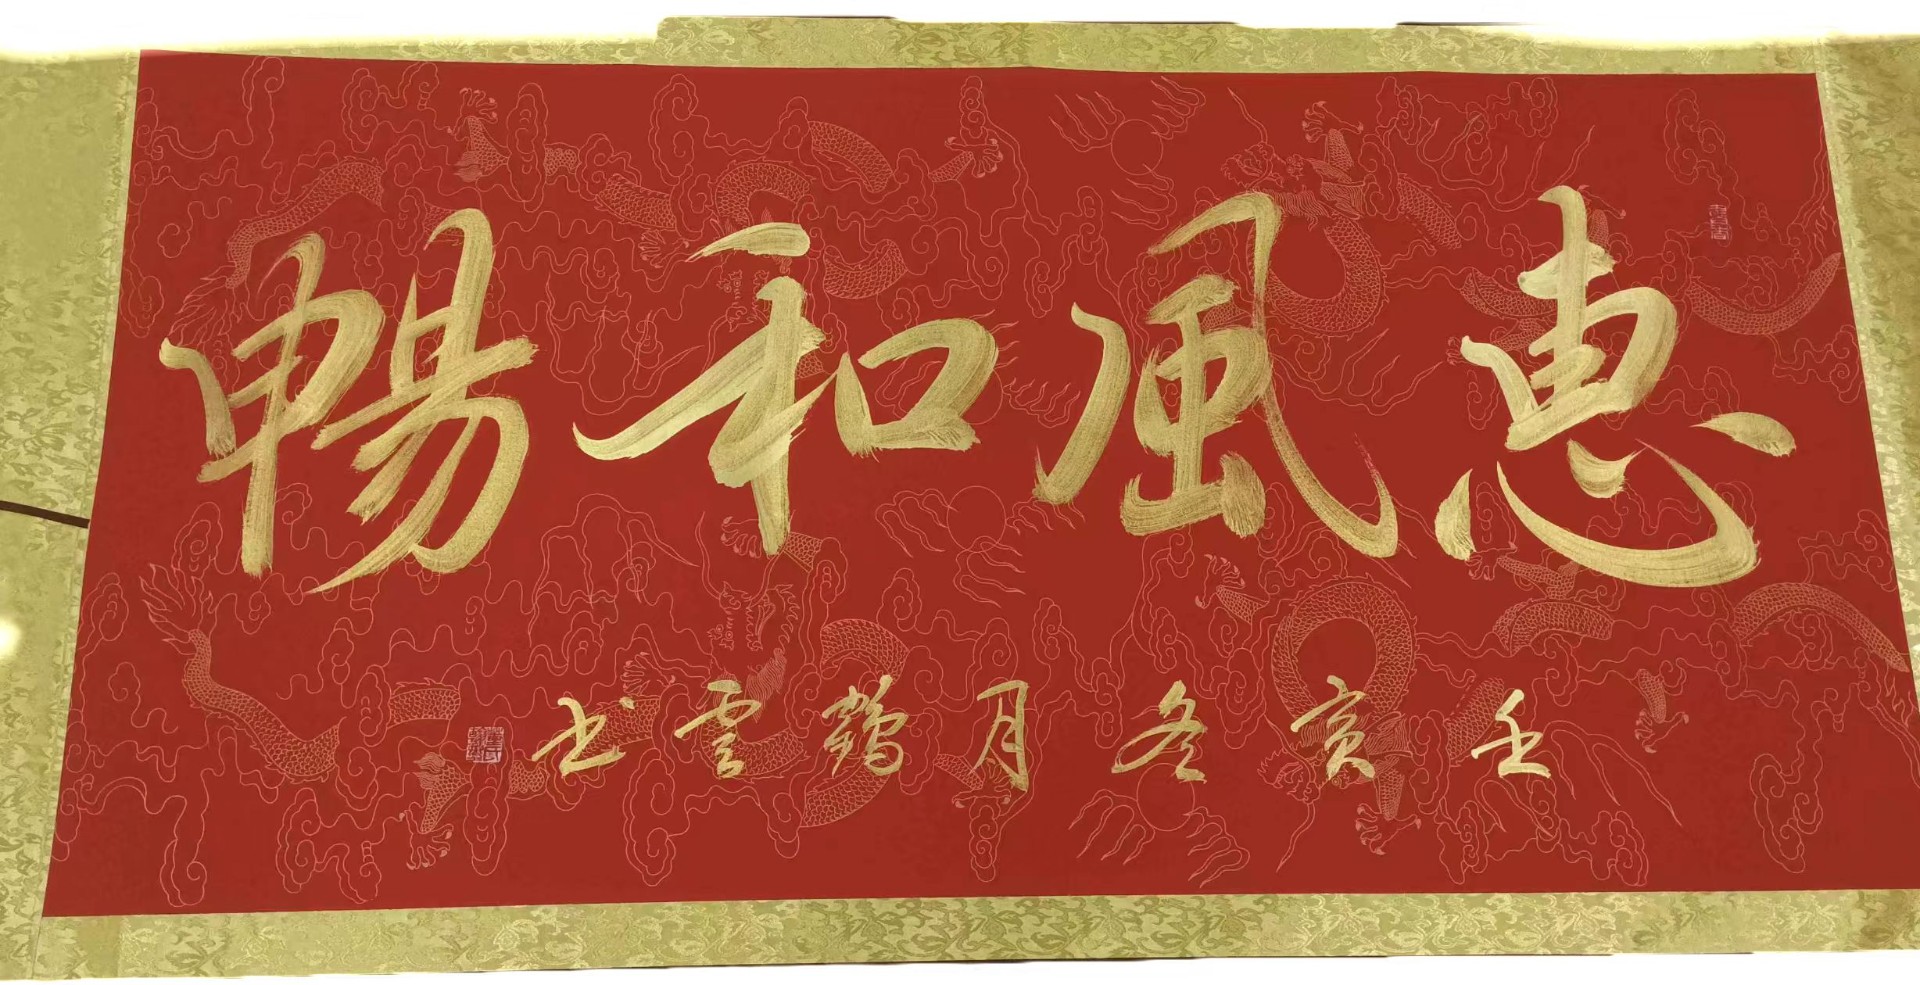 惠風和暢
壬寅冬月鶴雲书